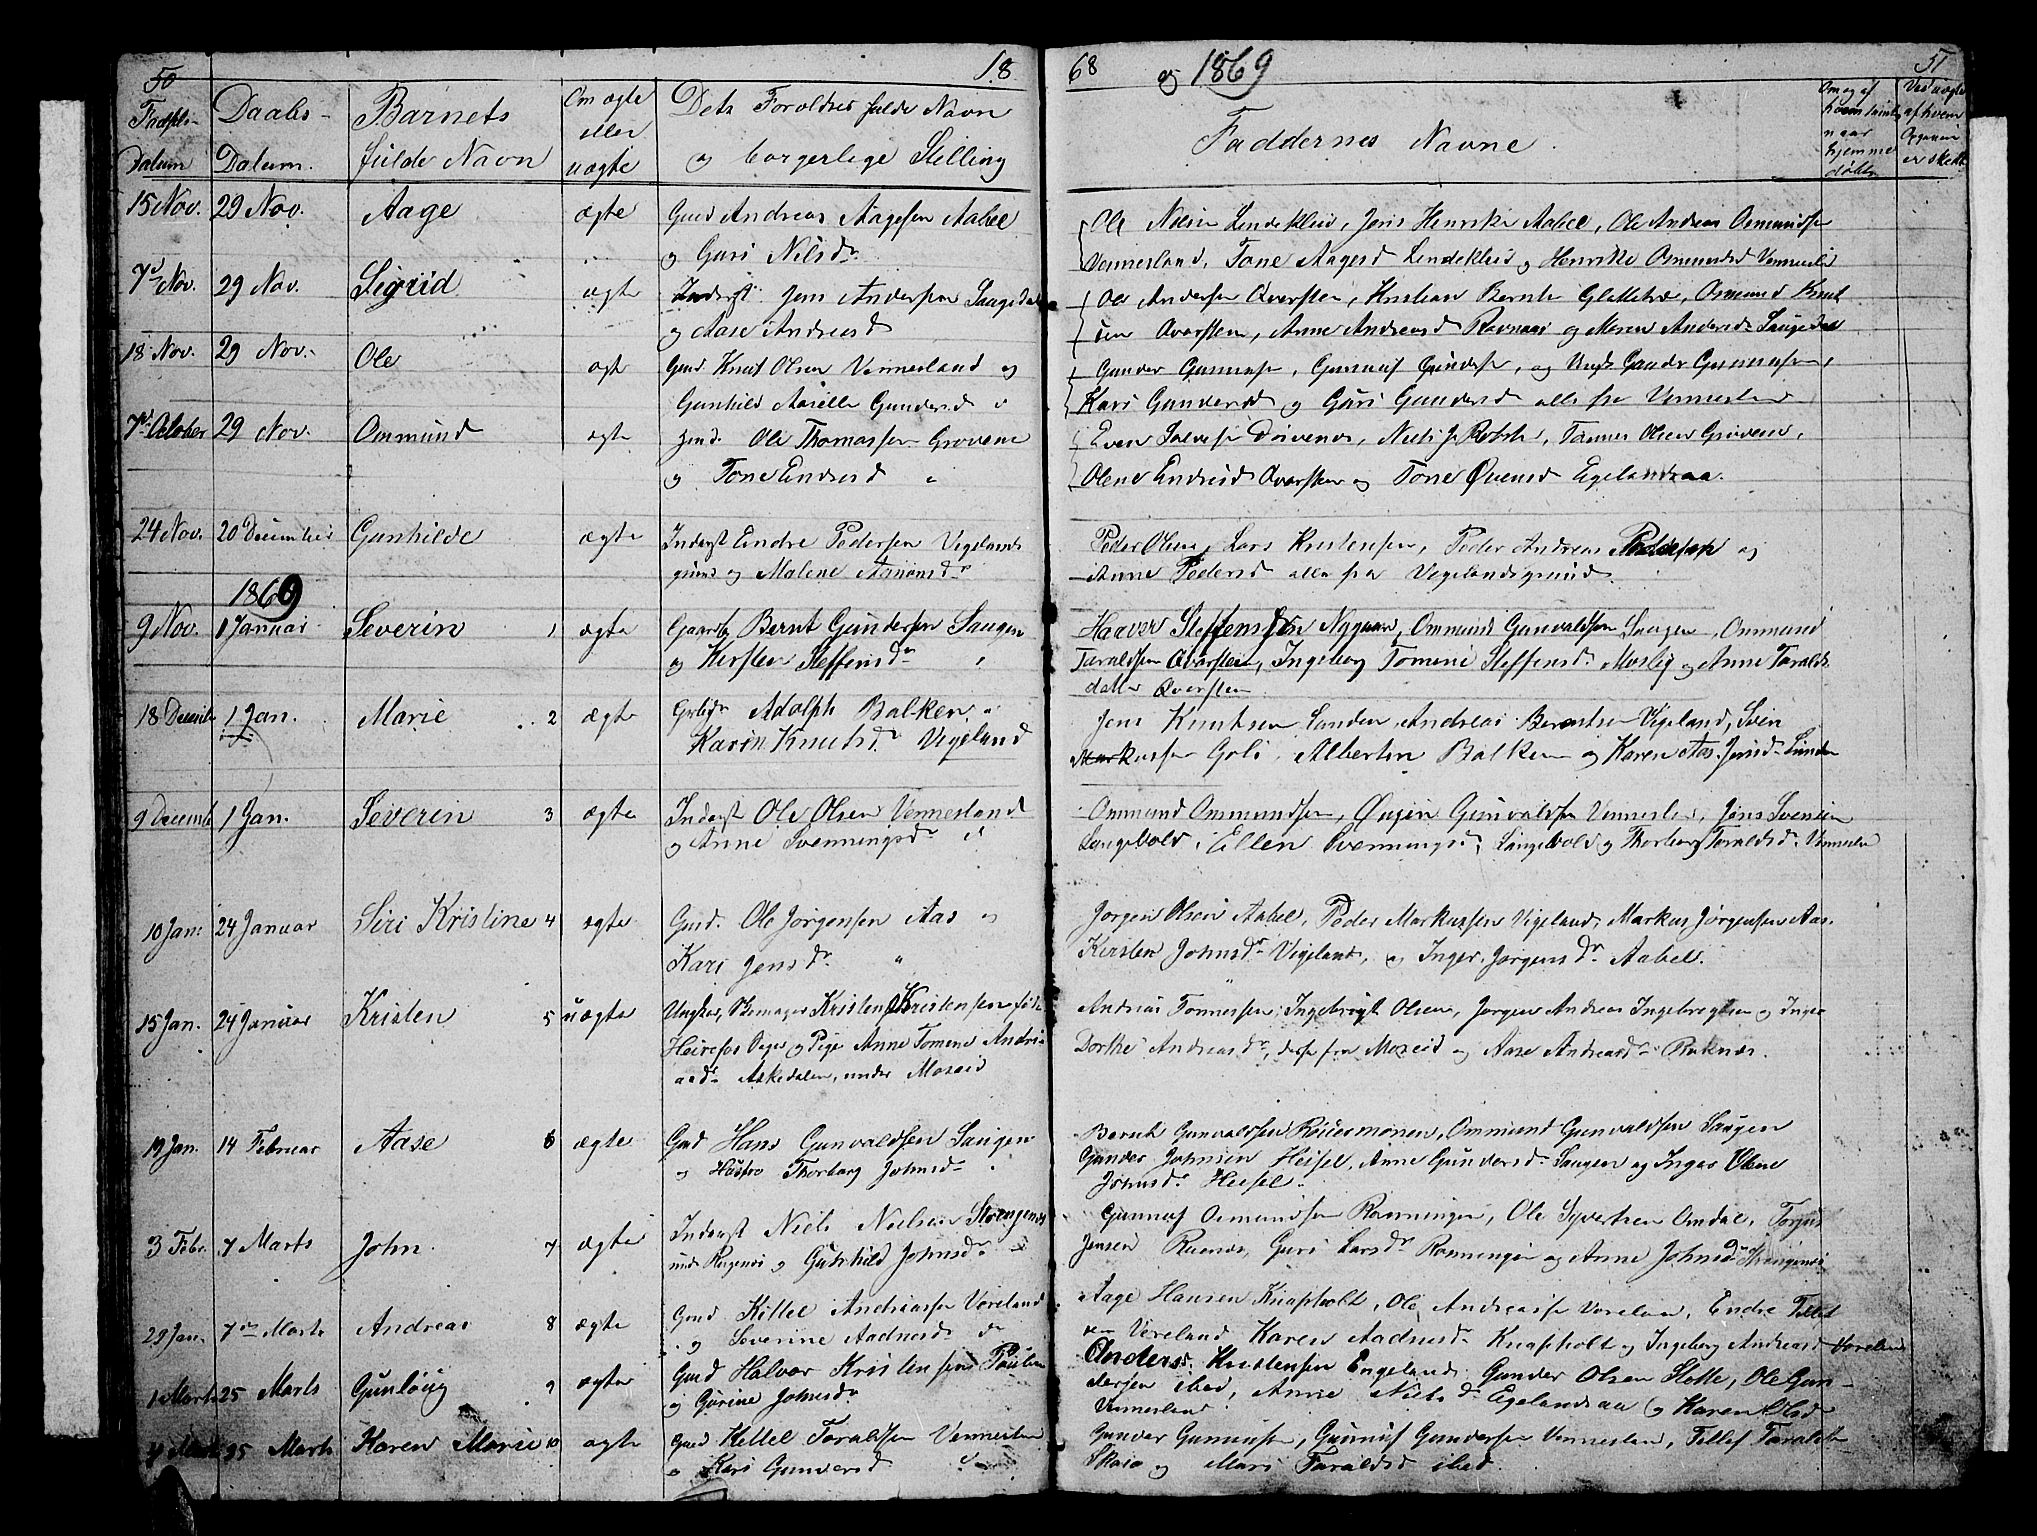 50
18
68
og 1869
51
Fødsels-
Datum
Daabs-
Datum.
Barnets
fulde Navn
Om ægte
eller
uægte
Dets Foræeldres fulde Navn
og borgerlige Stilling
Faddernes Navne.
Om og af
hvem
naar
hjemme
døbt
Ved uægte
af hvem
er skeet
15 Nov.
29 Nov.
Aage
ægte
Gmd Andreas Aagesen Aabel
og Guri Nilsdr
Ole Nilsen Lindekleiv, Jens Henrik Aabel, Ole Andreas Osmundsen
Vennesland, Tone Aagesd Lindekleiv og Henrikke Osmundsd Vennesl
7d Nov.
29 Nov.
Sigrid
ægte
Inderst Jens Andersen Saugedal
og Aase Andreasd
Ole Andersen Qvarsten, Kristian Bernts Glattetræ, Osmund Knut
sen Qvarsten, Anne Andreasd Ravnaas og Maren Andersd Saugedal
18 Nov.
29 Nov.
Ole
ægt
Gmd Knut Olsen Vennesland og
Gunhild Aasille Gundersd
Gunder Gunnufsen, Gunnuf Gundersen, og Ungk Gunder Gunnufsen,
Kari Gundersd og Guri Gundersd alle fra Vennesland
7de October
29 Nov.
Ommund
ægte
Gmd. Ole Thomassen Grovene
og Tone Endresd "
Even Salvesen Drivenes, Niels J. Robst, Tomas Olsen Grovene,
Olene Endresd Qvarsten og Tone Øvensd Egelandsaa.
24 Nov.
20 December
Gunhilde
ægte
Inderst Endre Pedersen Vigelands
grund og Malene Aanonsdr
Peder Olsen, Lars Kristensen, Peder Andreas Pedersen og
Anne Pedersd alle fra Vigelandsgrund.
1869
9 Nov.
1 Januar
Severin
1
ægte
Gaardb. Bernt Gundersen Saugen
og Kirsten Steffensdr "
Haaver Steffensen Nygaard, Ommund Gunvaldsen Saugen, Ommund
Taraldsen Qvarsten, Ingeborg Tomine Steffensdr Mosby og Anne Taralds
datter Qvarsten
18 Decemb
1 Jan.
Marie
2
ægte
Adolph Balken og
Karen Knutsd Vigeland
Jens Knutsen Lunden, Andreas Berntsen Vigeland, Svein
Markussen Goli, Albertin Balken og Karen Aas. Jensdr Lunden
9 Decemb
1 Jan.
Severin
3
ægte
Inderst Ole Olsen Vennesland
og Anne Svenningsdr "
Ommund Ommundsen, Øvjen Gunvaldsen Vennesland, Jens Svensen
Langevold, Ellen Svenningsdr Langevold og Thorborg Taraldsdr Vennesla
10 Jan:
24 Januar
Siri Kristine
4
ægte
Gmd. Ole Jørgensen Aas og
Kari Jensdr "
Jørgen Olsen Aabel, Peder Markussen Vigeland, Markus Jørgensen Aas.
Kirsten Johnsdr Vigeland, og Inger Jørgensdr Aabel.
15 Jan.
24 Januar
Kristen
5
uægte
Ungkar, Skomager Kristen Kristensen
og Pige Anne Tomine Andre-
asdr Askedalen, under Moseid
Andreas Tønnessen, Ingebregt Olsen, Jørgen Andreas Ingebregtsen og Inger
Dorthe Andreasdr, disse fra Moseid og Aase Andreasdr Ruknes.
19 Jan.
14 Februar
Aase
6
ægte
Gmd Hans Gunvaldsen Saugen
og Hustro Thorborg Johnsdr "
Bernt Gunvaldsen Roiesmonen, Ommund Gunvaldsen Saugen
Gunder Johnsen Heisel, Anne Gundersdr Saugen og Inger Olene
Johnsdr Heisel.
3 Febr.
7 Marts
John.
7
ægte
Inderst Niels Nielsen Strengenes
og Gunhild Johnsdr "
Gunnuf Osmundsen Rønningen, Ole Syvertsen Omdal, Torjus
Jensen Ravnaas, Guri Larsdr Rønningen og Anne Johnsdr Strengenes
29 Jan.
7de Marts
Andreas
8
ægte
Gmd Kittel Andreassen Væreland
og Severine Aadnesd do
Aage Hansen Knapholt, Ole Andreassen Væreland, Endre Tellef
sen Væreland Karen Aadnesdr Knapholt og Ingeborg Andreasd Væreland
1 Marts
25 Marts
Gunløug
9
ægte
Gmd Halvor Kristensen
og Gurine Johnsdr
Anders Kristensen Engeland, Gunder Olsen Slotte, Ole Gun-
dersen ibid, Anne Nilsdr Egelandsaa og Karen Olsd
Vennesland
4 Marts
25 Marts
Karen Marie
10
ægte
Gmd Kettel Taraldsen Vennesland
og Kari Gundersd
Gunder Gunnufsen, Gunnuf Gundersen Vennesland, Tellef Taraldsen
Skaia og Mari Taraldsd ibid.